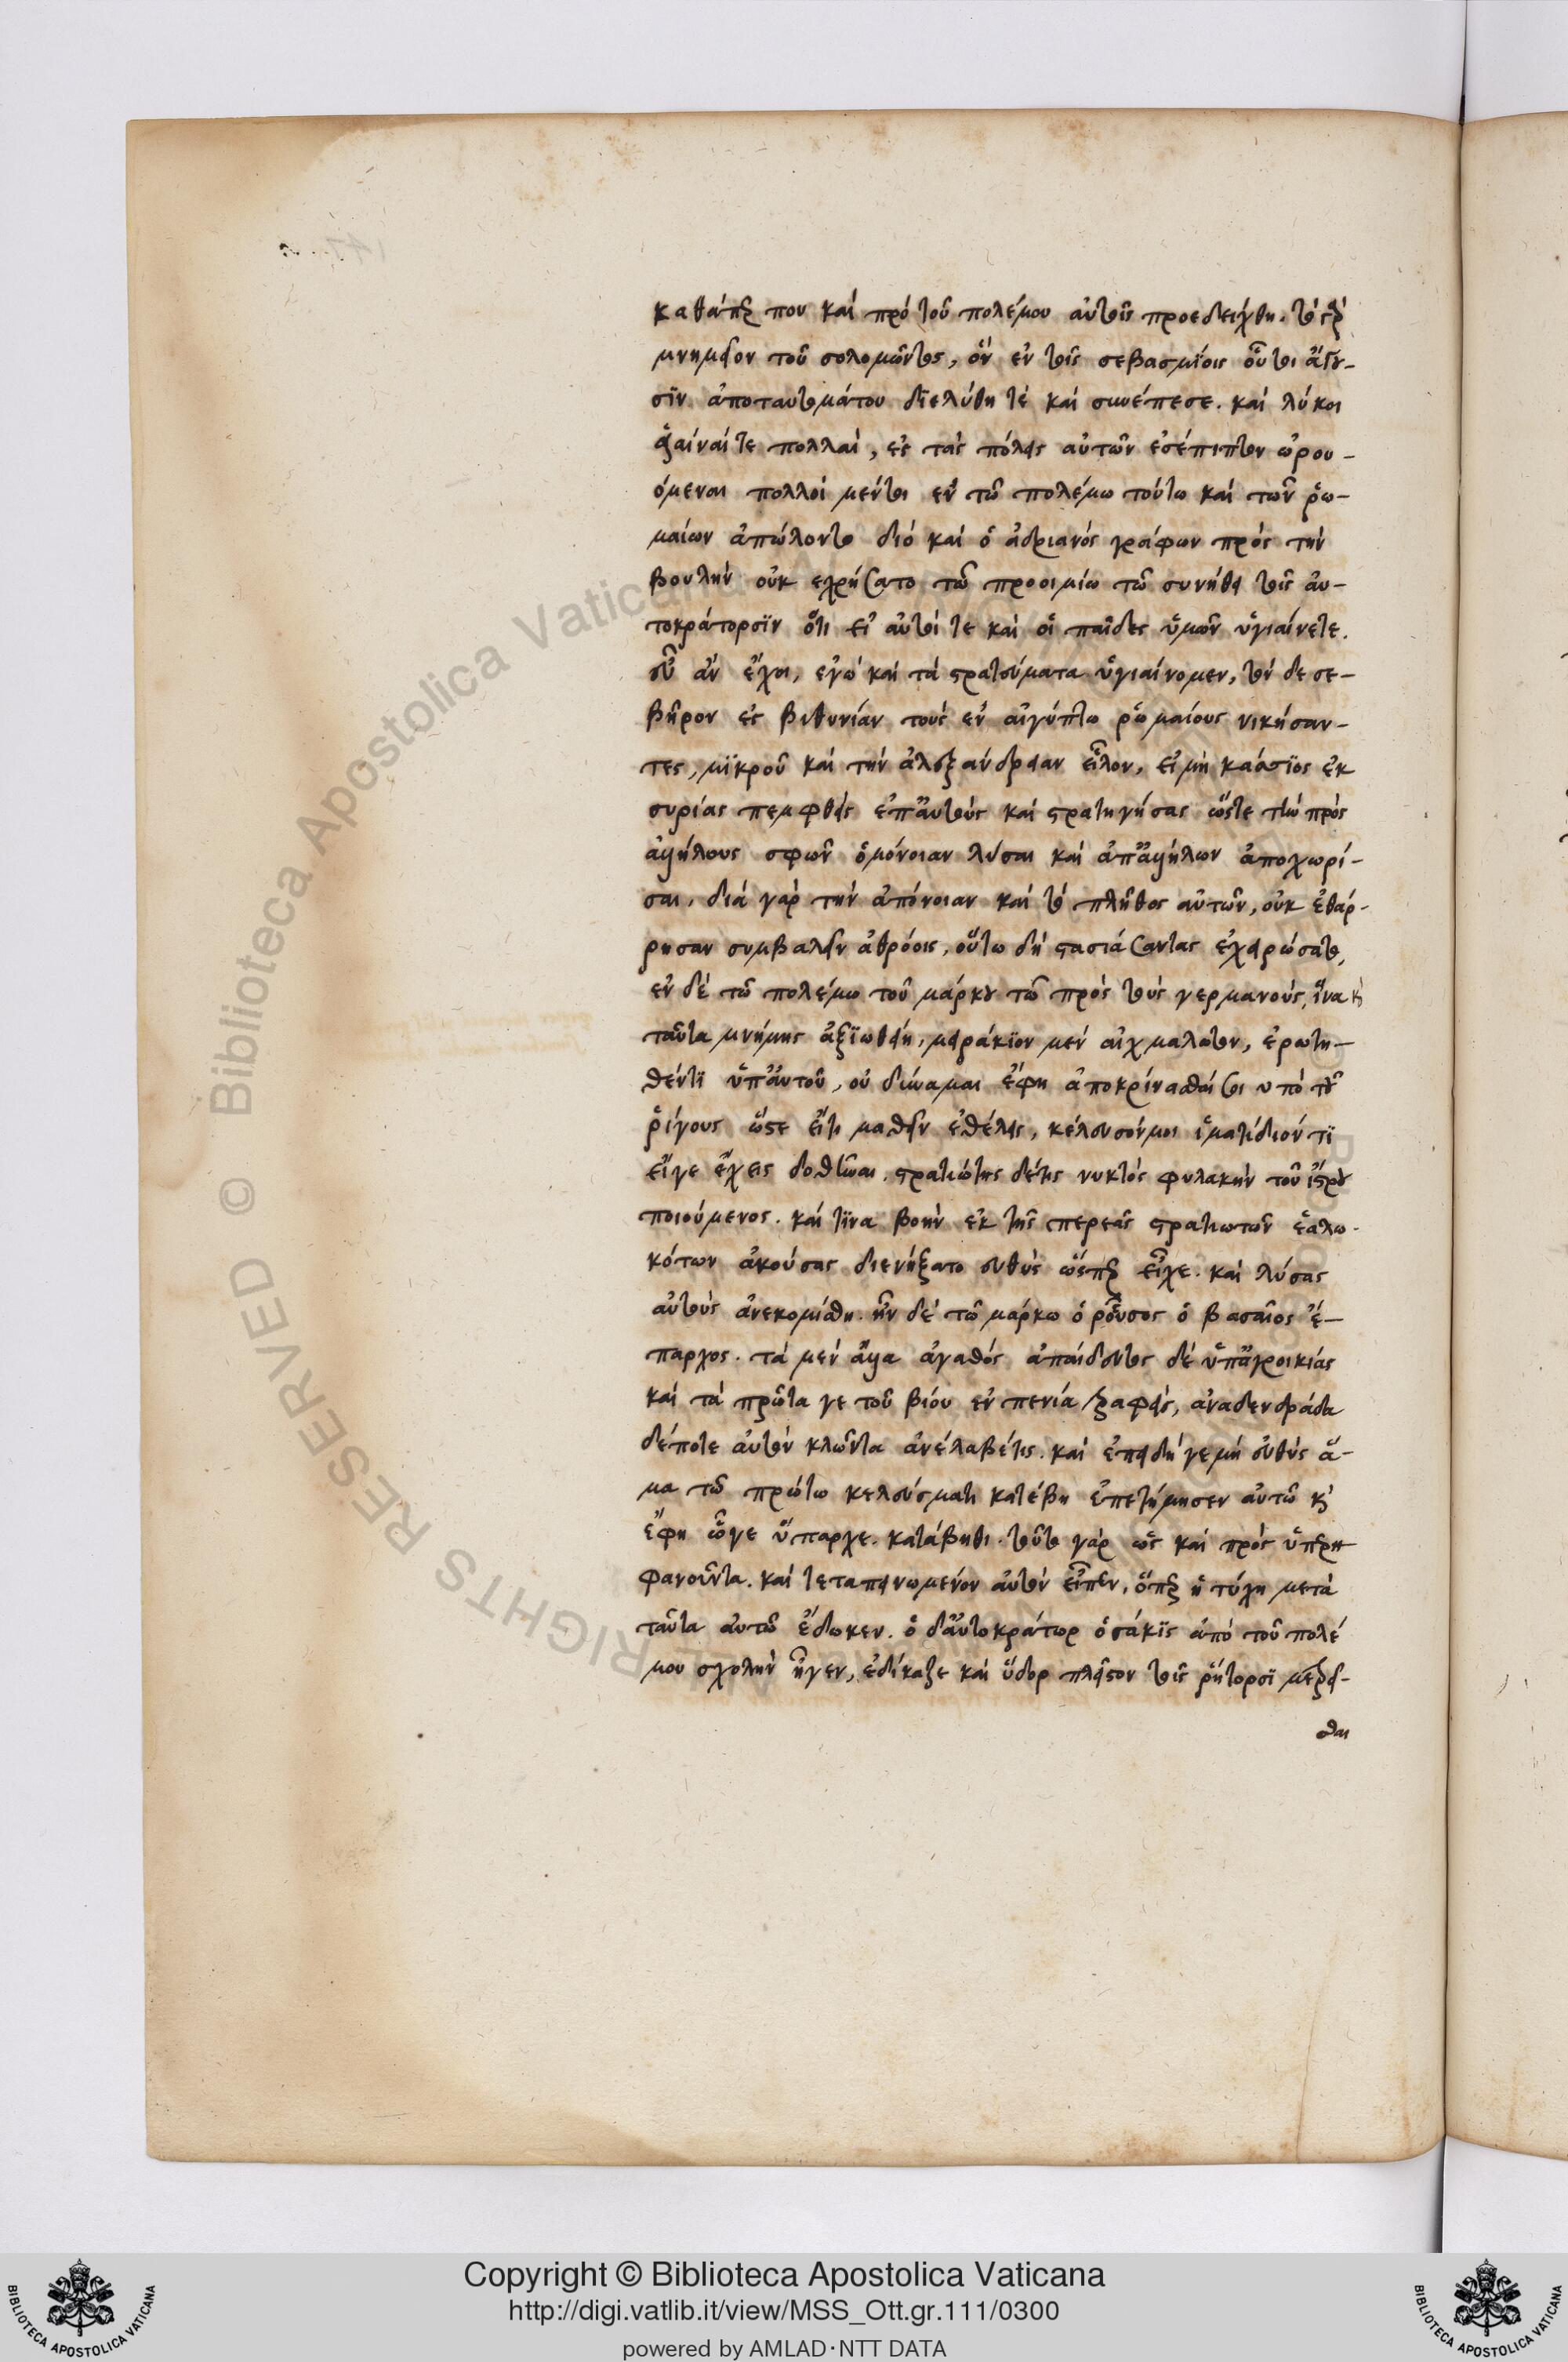 καθάπερ που καὶ πρὸ τοῦ πολέμου αὐτοῖς προεδείχθη. τὸ γὰρ
μνημεῖον τοῦ σολομῶντος, ὃν ἐν τοῖς σεβασμίοις οὗτοι ἄγου-
σϊν ἀποταυτομάτου διελύθη τὲ καὶ συνέπεσε. καὶ λύκοι
ὕαιναί τε πολλαὶ, ἐς τὰς πόλεις αὐτῶν ἐσέπιπτον ὠρου-
όμεναι πολλοὶ μέντοι ἐν τῶ πολέμω τούτω καὶ τῶν ῥω-
μαίων ἀπώλοντο διὸ καὶ ὁ ἀδριανὸς γράφων πρὸς τὴν
βουλὴν οὐκ ἐχρήσατο τῶ προοιμίω τῶ συνήθει τοῖς αὐ-
τοκράτορσϊν ὅτι εἰ αὐτοί τε καὶ οἱ παῖδες ὑμῶν ὑγιαίνετε.
εὖ ἂν ἔχοι, ἐγὼ καὶ τὰ στρατεύματα ὑγιαίνομεν, τὸν δε σε-
βῆρον ἐς βιθυνίαν τοὺς ἐν αἰγύπτω ῥωμαίους νικήσαν-
τες, μϊκροῦ καὶ τὴν ἀλεξανδρειαν εἷλον, εἰ μὴ κάσσϊος ἐκ
συρίας πεμφθεὶς ἐπ' αὐτοὺς καὶ στρατηγήσας ὥστε τὴν πρὸς
ἀλλήλους σφῶν ὁμόνοιαν λύσαι καὶ ἀπ' ἀλλήλων ἀποχωρί-
σαι, διὰ γὰρ τὴν ἀπόνοιαν καὶ τὸ πλῆθος αὐτῶν, οὐκ ἐθάρ-
ρησαν συμβαλεῖν ἀθρόοις, οὕτω δὴ στασιάσαντας ἐχειρώσατο,
ἐν δὲ τῶ πολέμω τοῦ μάρκου τῶ πρὸς τοὺς γερμανοὺς, ἵνα κὶ
ταῦτα μνήμης ἀξιωθείη, μειράκϊον μὲν αἰχμαλωτον, ἐρωτη-
θέντϊ ὑπ' αὐτοῦ, οὐ δύναμαι ἔφη ἀποκρίνασθαί σοι υπὸ τοῦ
ῥίγους ὥστε εἴ τι μαθεῖν ἐθέλεις, κέλευσόν μοι ἱματίδιόν τϊ
εἴγε ἔχεις δοθῆναι. στρατιώτης δέ τις νυκτὸς φυλακὴν τοῦ ἴστρου
ποιούμενος. καὶ τϊνα βοὴν ἐκ τῆς περεᾶς στρατιωτῶν ἑαλω-
κότων ἀκούσας διενήξατο εὐθὺς ὥσπερ εἶχε. καὶ λύσας
αὐτοὺς ἀνεκομίσθη. ἦν δὲ τῶ μάρκω ὁ ῥοῦυσος ὁ βασαῖος ἔ-
παρχος. τὰ μὲν ἄλλα ἀγαθός ἀπαίδευτος δὲ ὑπ' ἀγροικίας
καὶ τὰ πρῶτα γε τοῦ βίου ἐν πενία τραφεὶς, ἀναδενδράδα
δέ ποτε αὐτὸν κλῶντα ἀνέλαβέ τις. καὶ ἐπειδή γε μὴ εὐθὺς ἅ-
μα τῶ πρώτω κελεύσματι κατέβη ἐπετίμησεν αὐτῶ κὶ
ἔφη ὦγε ὕπαρχε. κατάβηθι. τοῦτο γὰρ ὡς καὶ πρὸς ὑπερη
φανοῦντα. καὶ τεταπεινωμένον αὐτὸν εἶπεν, ὅπερ ἡ τύχη μετὰ
ταῦτα αὐτῶ ἔδωκεν. ὁ δ' αὐτοκράτωρ ὁσάκϊς ἀπὸ τοῦ πολέ
μου σχολὴν ἦγεν, ἐδίκαζε καὶ ὕδορ πλεῖστον τοῖς ῥήτορσϊ μετρεῖ-
σθαι
Copyright © Biblioteca Apostolica Vaticana
http://digi.vatlib.it/view/MSS_Ott.gr.111/0300
powered by AMLAD·NTT DATA